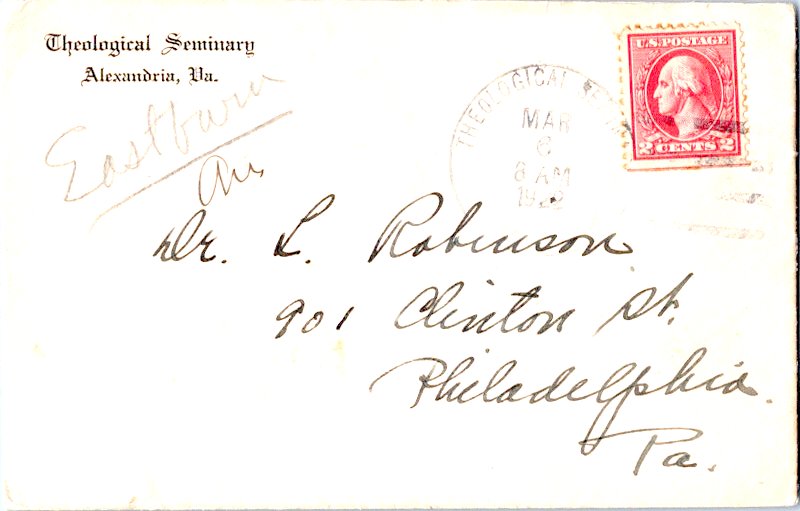 Theological Seminary
Alexandria, Va.
Eastburn
U.S. POSTAGE
2 CENTS 2
THEOLOGICAL
MAR
6
8 AM
Dr. L. Robinson
901 Clinton St.
Philadelphia.
Pa.